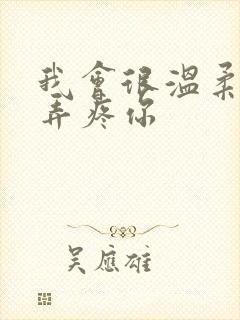 我會很溫柔
弄疼你
吳應雄